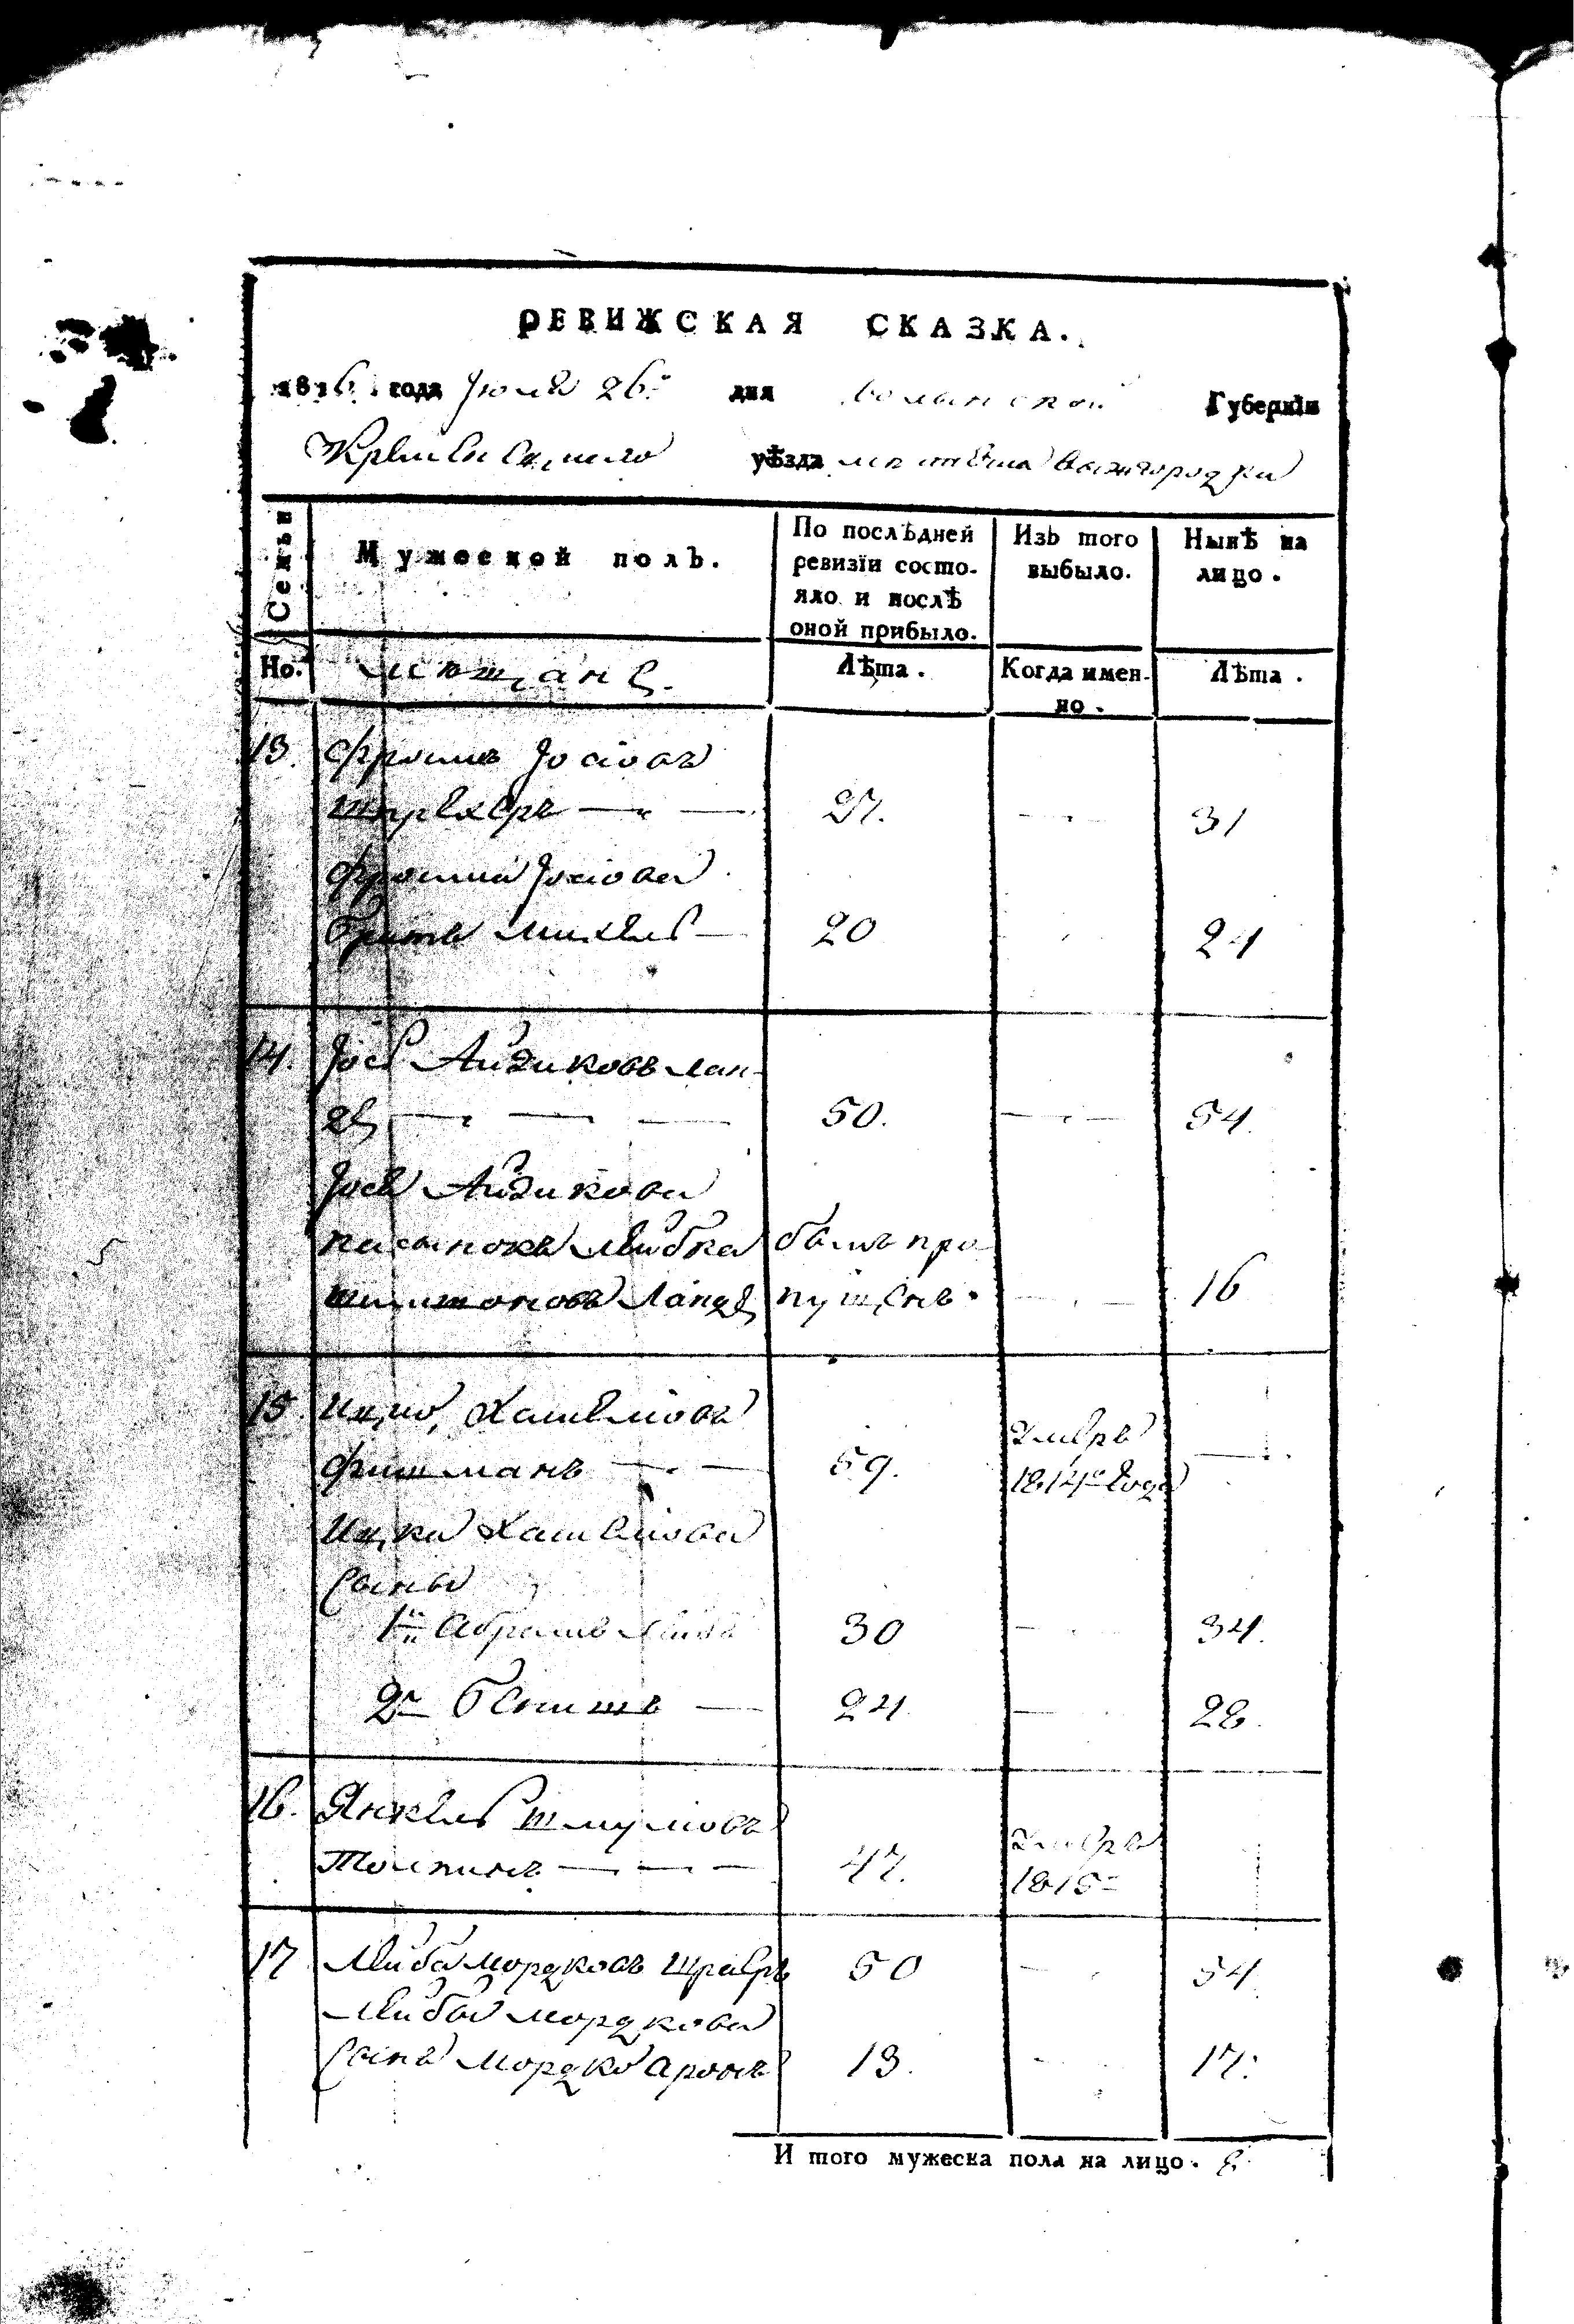 РЕВИЖСКАЯ СКАЗКА.
1816 года Іюля 26 дня Волынской Губерніи
Кременецкаго уѣзда мѣстечка Вышгородка
Семьи
Мужеской полъ.
По послѣдней ревизіи состояло и послѣ оной прибыло.
Изъ того выбыло.
Нынѣ на лицо.
Но. Мещане. Лѣта. Когда именно. Лѣта.
13. Фроимъ Іосіовъ
27. 31
Фроима Іосіова
братъ Михель 20 24
14. Іось Айзиковъ Лан-
де 50. 54.
Іося Айзикова
пасынокъ Лейбка былъ про-
Ланде пущенъ. 16
15. Ицко Хаимовъ
Фишманъ 59. 1814го года
Ицка Хаимова
сыны
1й Абрамъ 30 34.
2й Бениш 24 28.
16. Янкель Шмулiовъ
47. 1815го
17 Лейба Мордковъ 50 54.
Лейбы Мордкова
сынъ Мордко Аронъ 13. 17.
И того мужеска пола на лицо. 8